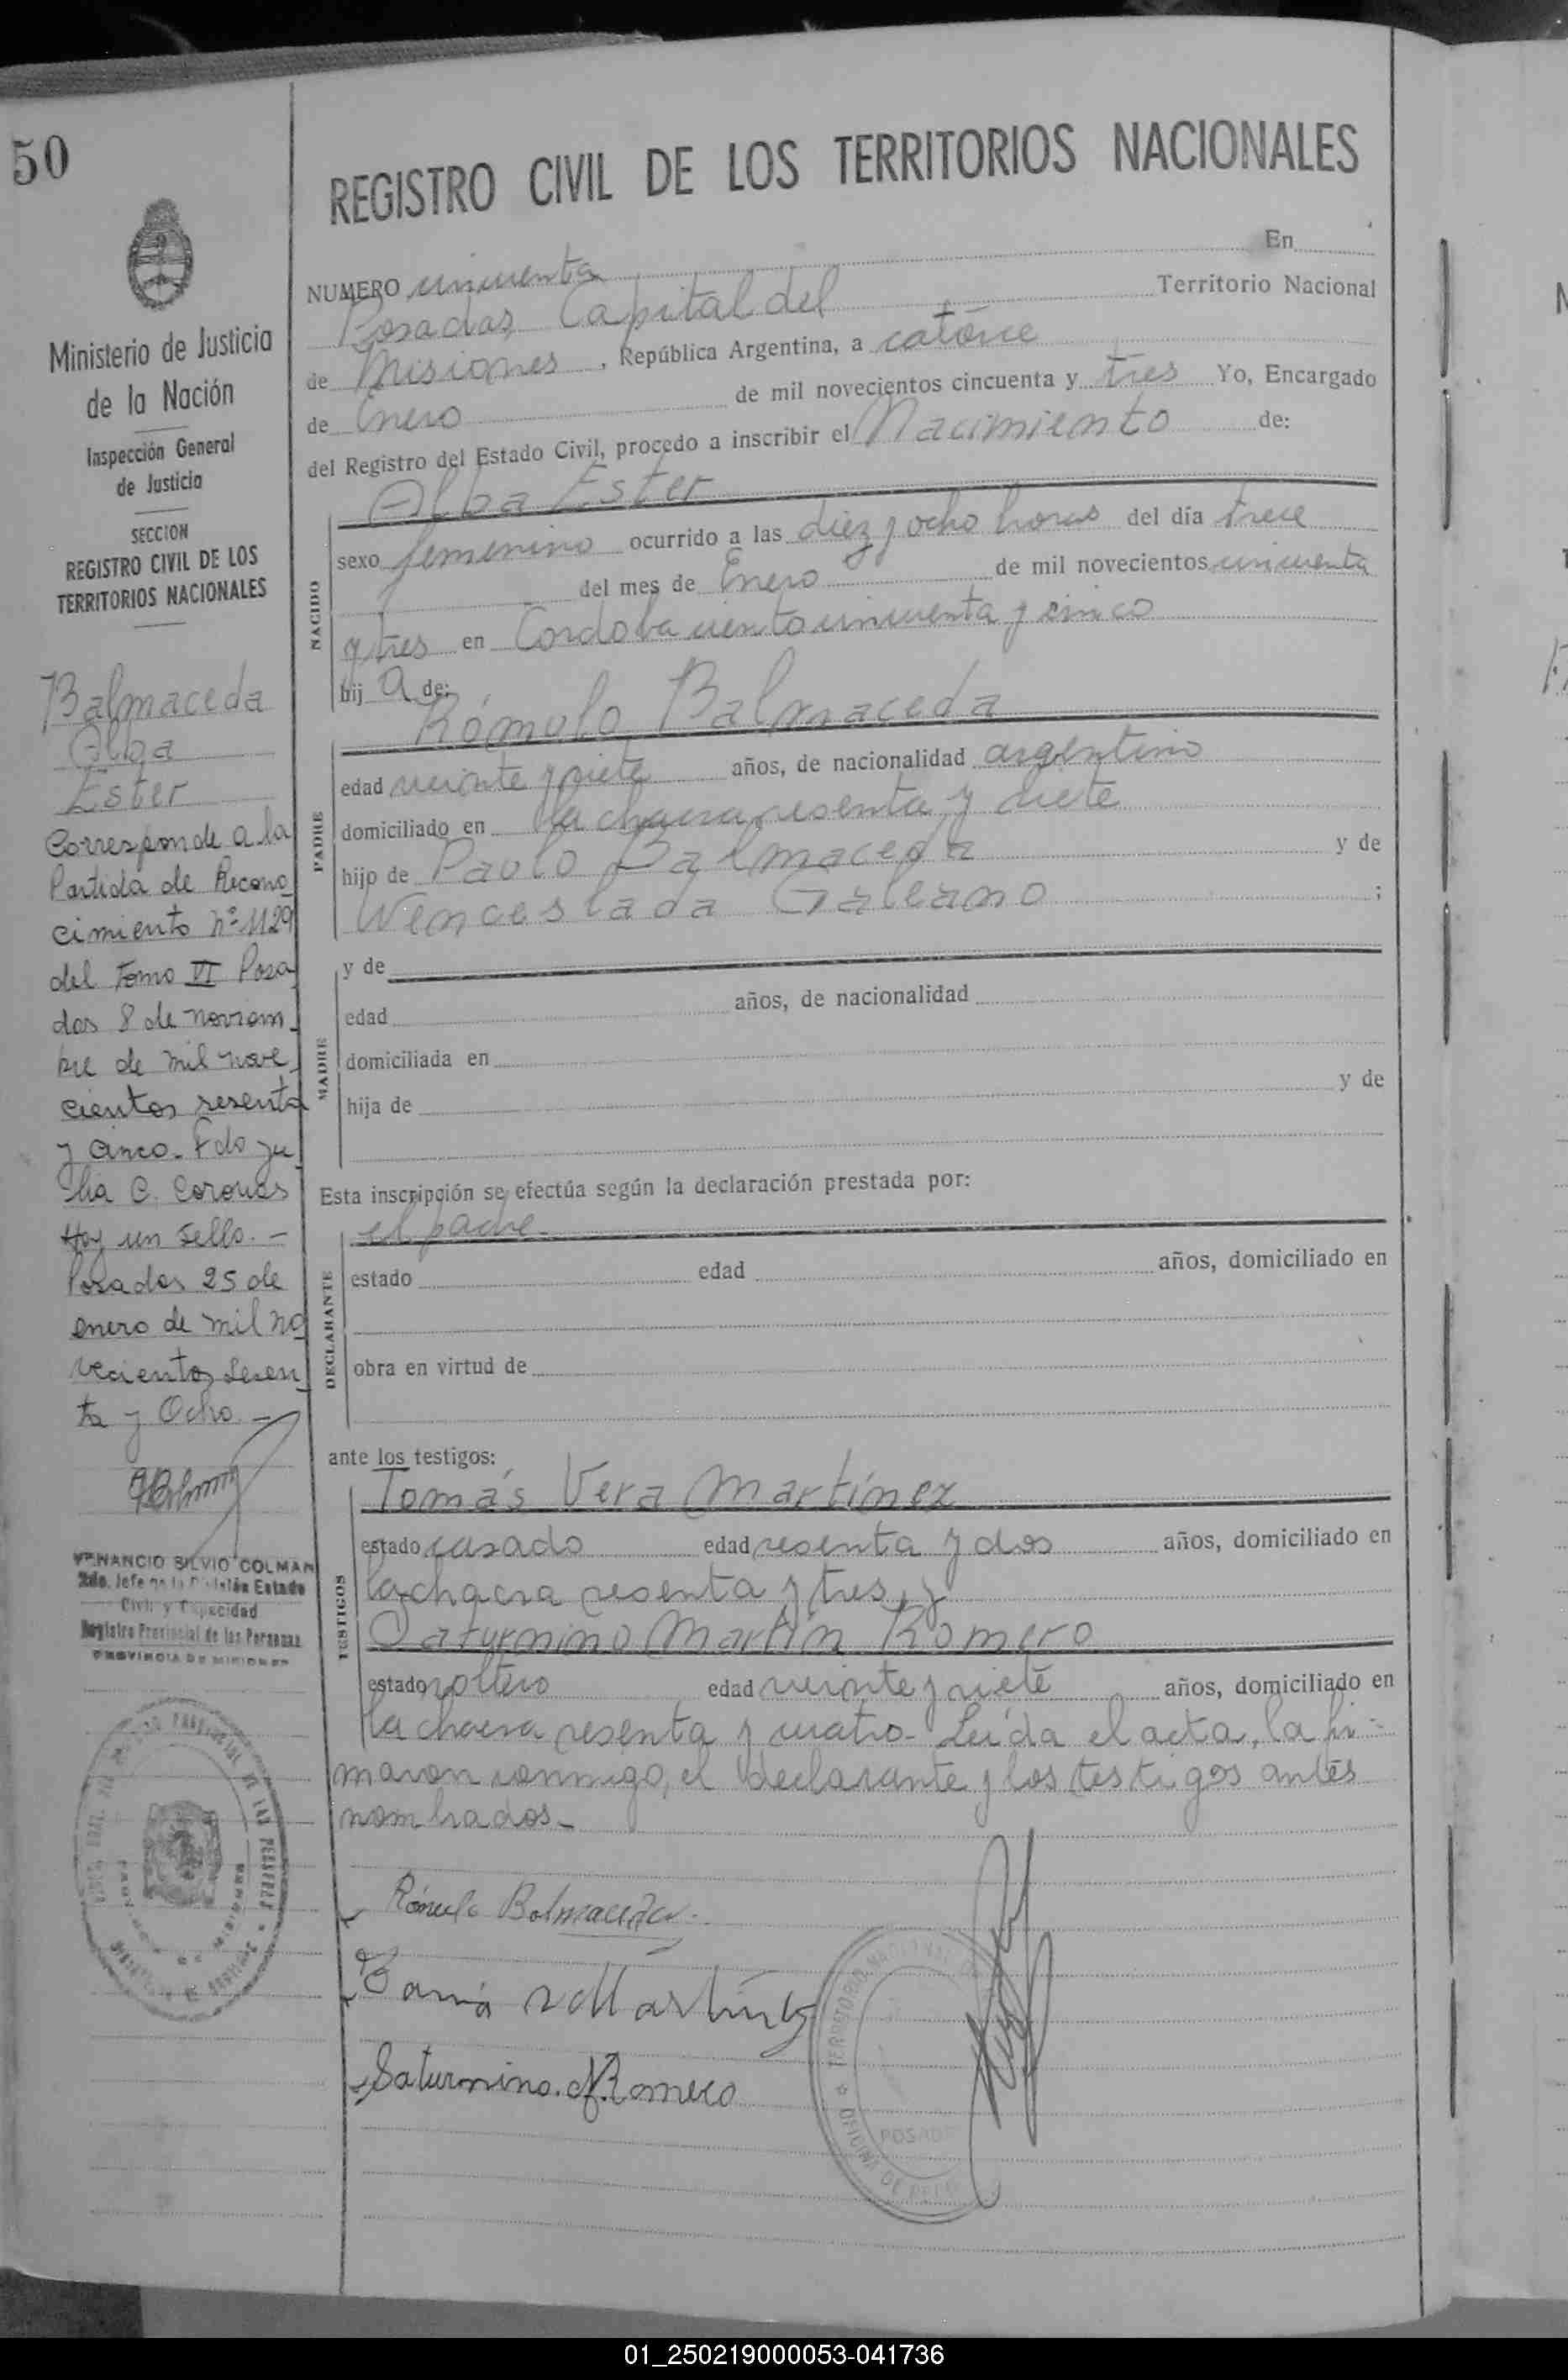 50
Ministerio de Justicia
de la Nación
Inspección General
de Justicia
SECCION
REGISTRO CIVIL DE LOS
TERRITORIOS NACIONALES
Balmaceda
Alba
Ester
Corresponde a la
Partida de Recono
cimiento Nº 1129
del Tomo VI Posa
das 8 de noviem
bre de mil nove
cientos sesenta
y cinco. Fdo Ju
lia C. Coronas
Hay un sello. -
Posadas 25 de
enero de mil no
vecientos sesen
ta y Ocho -
VENANCIO SILVIO COLMAN
2do. Jefe de la División Estado
Civil y Capacidad
Registro Provincial de las Personas
PROVINCIA DE MISIONES
REGISTRO CIVIL DE LOS TERRITORIOS NACIONALES
NUMERO cincuenta En
Posadas, Capital del Territorio Nacional
de Misiones, República Argentina, a catorce
de Enero de mil novecientos cincuenta y tres Yo, Encargado
del Registro del Estado Civil, procedo a inscribir el Nacimiento de:
NACIDO
Alba Ester
sexo femenino ocurrido a las diez y ocho horas del día trece
del mes de Enero de mil novecientos cincuenta
y tres en Cordoba ciento cincuenta y cinco
hij a de:
PADRE
Rómulo Balmaceda
edad veinte y siete años, de nacionalidad argentino
domiciliado en la chacra sesenta y siete
hijo de Paulo Balmaceda y de
Wenceslada Galeano ;
MADRE
y de
edad años, de nacionalidad
domiciliada en
hija de y de
Esta inscripción se efectúa según la declaración prestada por:
DECLARANTE
el padre-
estado edad años, domiciliado en
obra en virtud de
ante los testigos:
TESTIGOS
Tomás Vera Martínez
estado casado edad sesenta y dos años, domiciliado en
la chacra sesenta y tres, y
Saturnino Martín Romero
estado soltero edad veinte y siete años, domiciliado en
la chacra sesenta y cuatro- Leída el acta, la fir-
maron conmigo, el declarante y los testigos antes
nombrados.-
Rómulo Balmaceda.
Saturnino. M. Romero
TERRITORIO NACIONAL
POSADAS
OFICINA DE
01_250219000053-041736